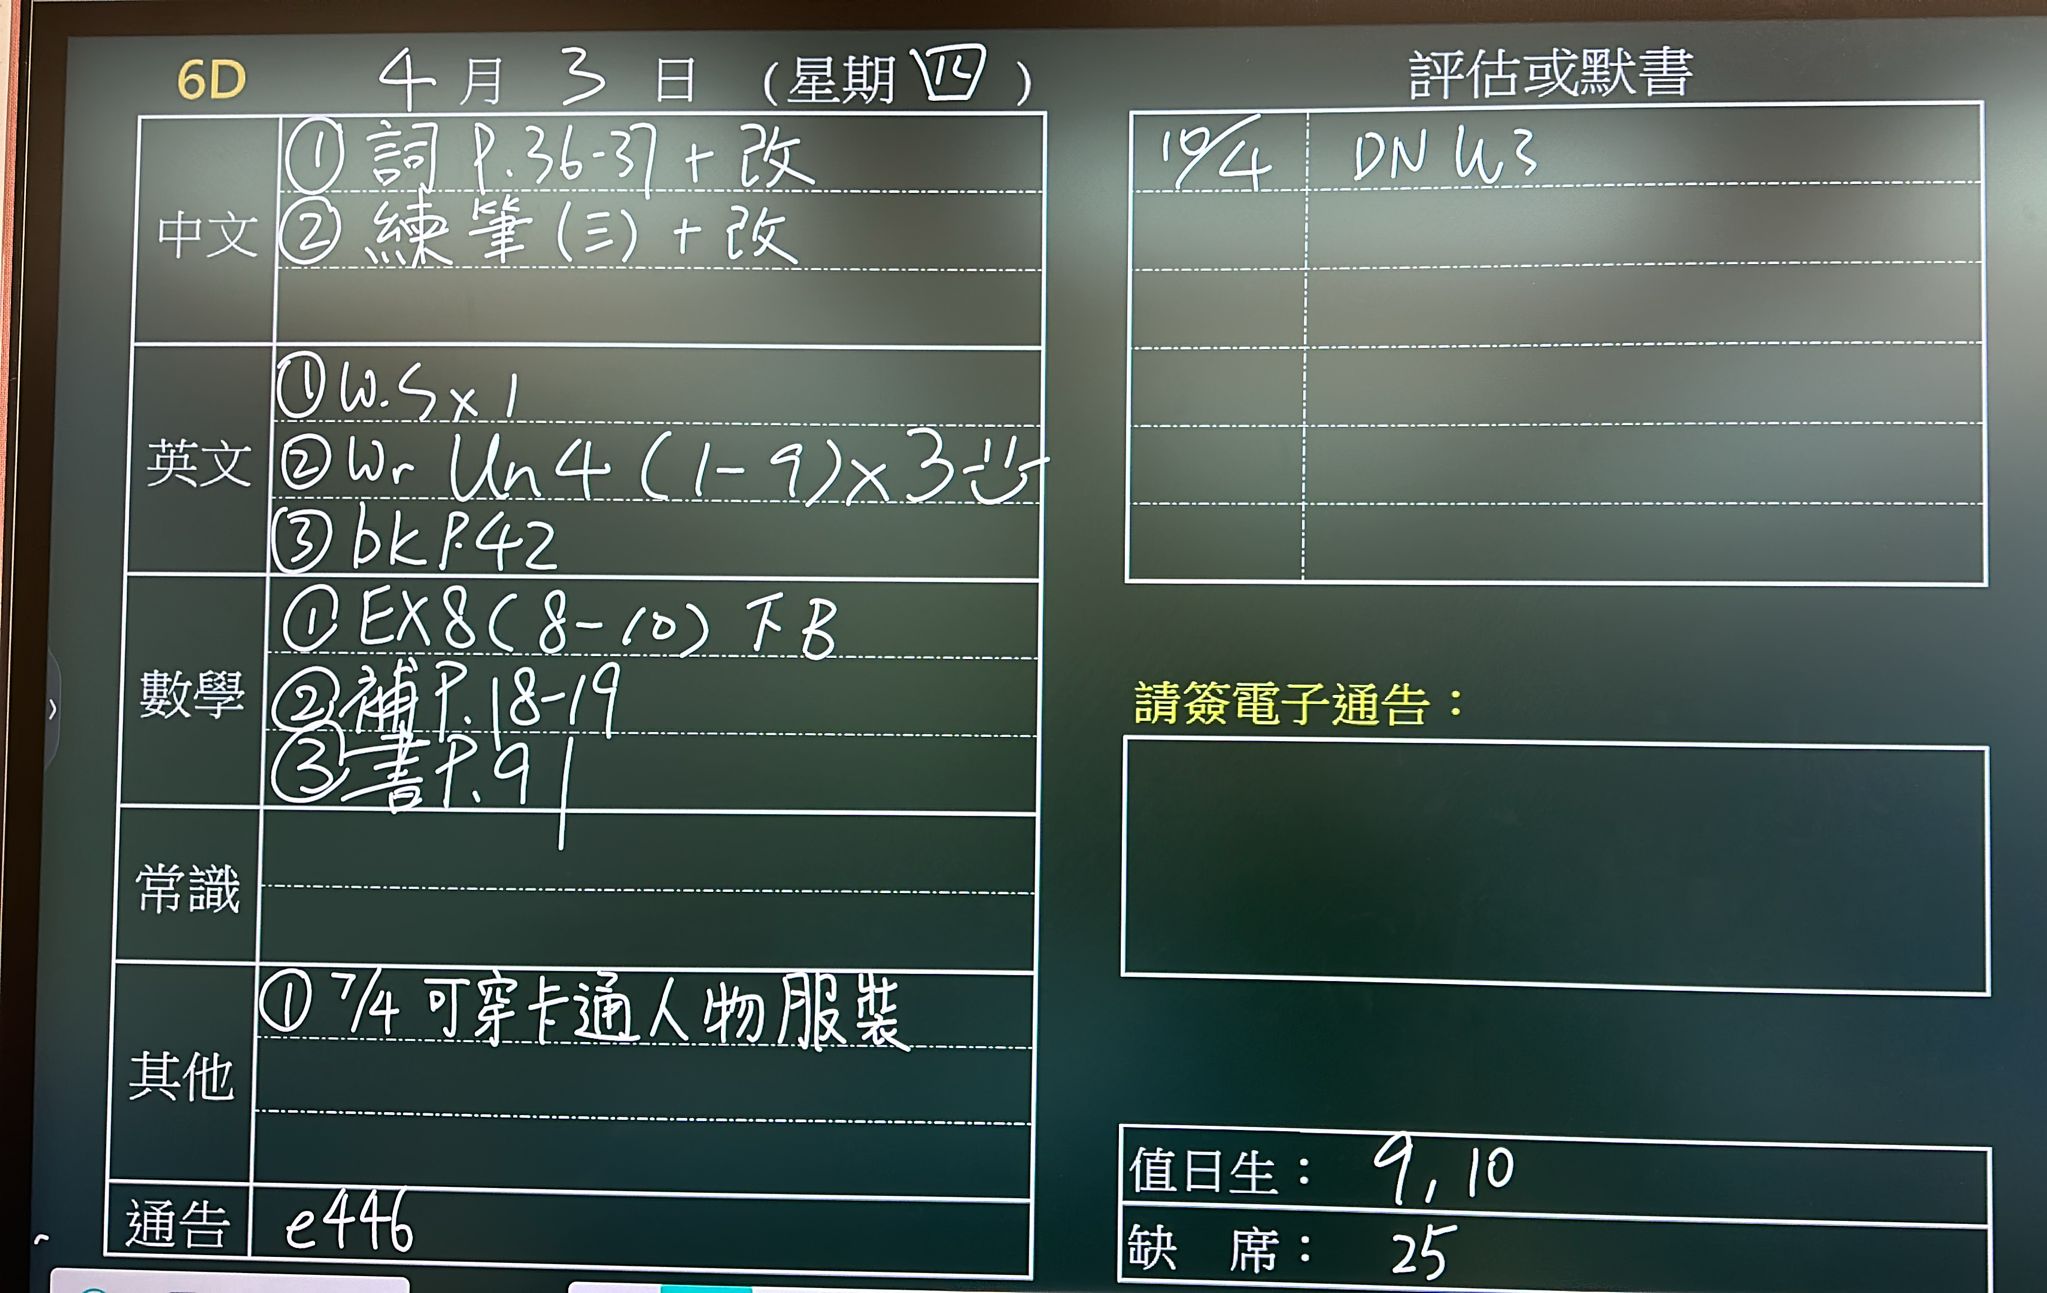 6D 4月3日（星期四）
中文
① 詞 P.36-37 + 改
② 練筆(三) + 改
英文
① W.S x 1
② Wr Un 4 (1-9) x 3
③ bk P.42
數學
① EX8(8-10) 下B
② 補 P.18-19
③ 書 P.91
常識
其他
① 7/4 可穿卡通人物服裝
通告 e446
評估或默書
10/4 DN U3
請簽電子通告：
值日生： 9, 10
缺 席： 25